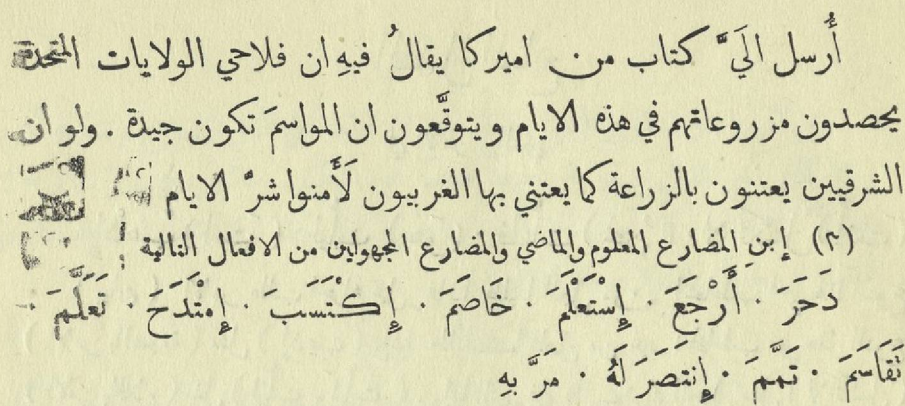 أُرسل الَيَّ كتاب من اميركا يقالُ فيهِ ان فلاحي الولايات المتحدة
يحصدون مزروعاتهم في هذه الايام ويتوقَّعون ان المواسمَ تكون جيدة . ولو ان
الشرقيين يعتنون بالزراعة كما يعتني بها الغربيون لَأَمنوا شرَّ الايام
(٣) إِبنِ المضارع المعلوم والماضي والمضارع المجهولين من الافعال التالية :
دَحَرَ ٠ أَرْجَعَ ٠ إِسْتَعْلَمَ ٠ خَاصَمَ ٠ إِكْتَسَبَ ٠ إِمْتَدَحَ ٠ تَعَلَّمَ ٠
تَقَاسَمَ ٠ تَمَّمَ ٠ إِنتَصَرَ لَهُ ٠ مَرَّ بِهِ